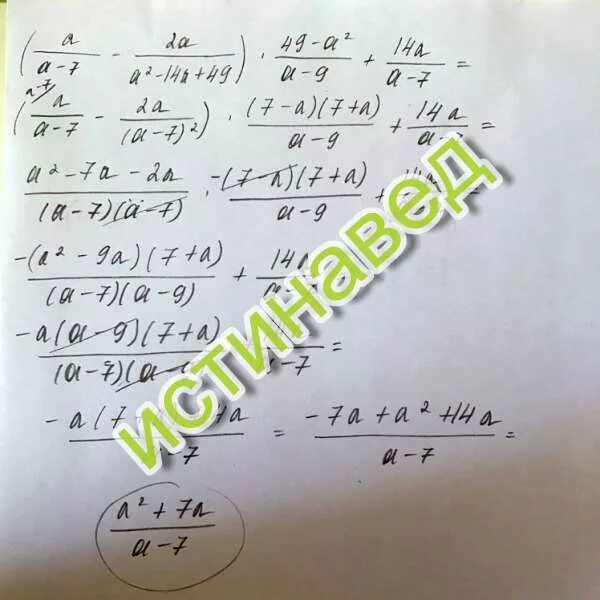 (a/(a-7) - 2a/(a²-14a+49)) · (49-a²)/(a-9) + 14a/(a-7) =
a-7
(a/(a-7) - 2a/(a-7)²) · (7-a)(7+a)/(a-9) + 14a/ =
(a²-7a-2a)/((a-7)(a-7)) · -(7-a)(7+a)/(a-9) +
-(a²-9a)(7+a)/((a-7)(a-9)) + 14a
-a(a-9)(7+a)/((a-7)(a- -7 =
-a(7 a/ -7 = (-7a+a²+14a)/(a-7) =
(a²+7a)/(a-7)
истинавед